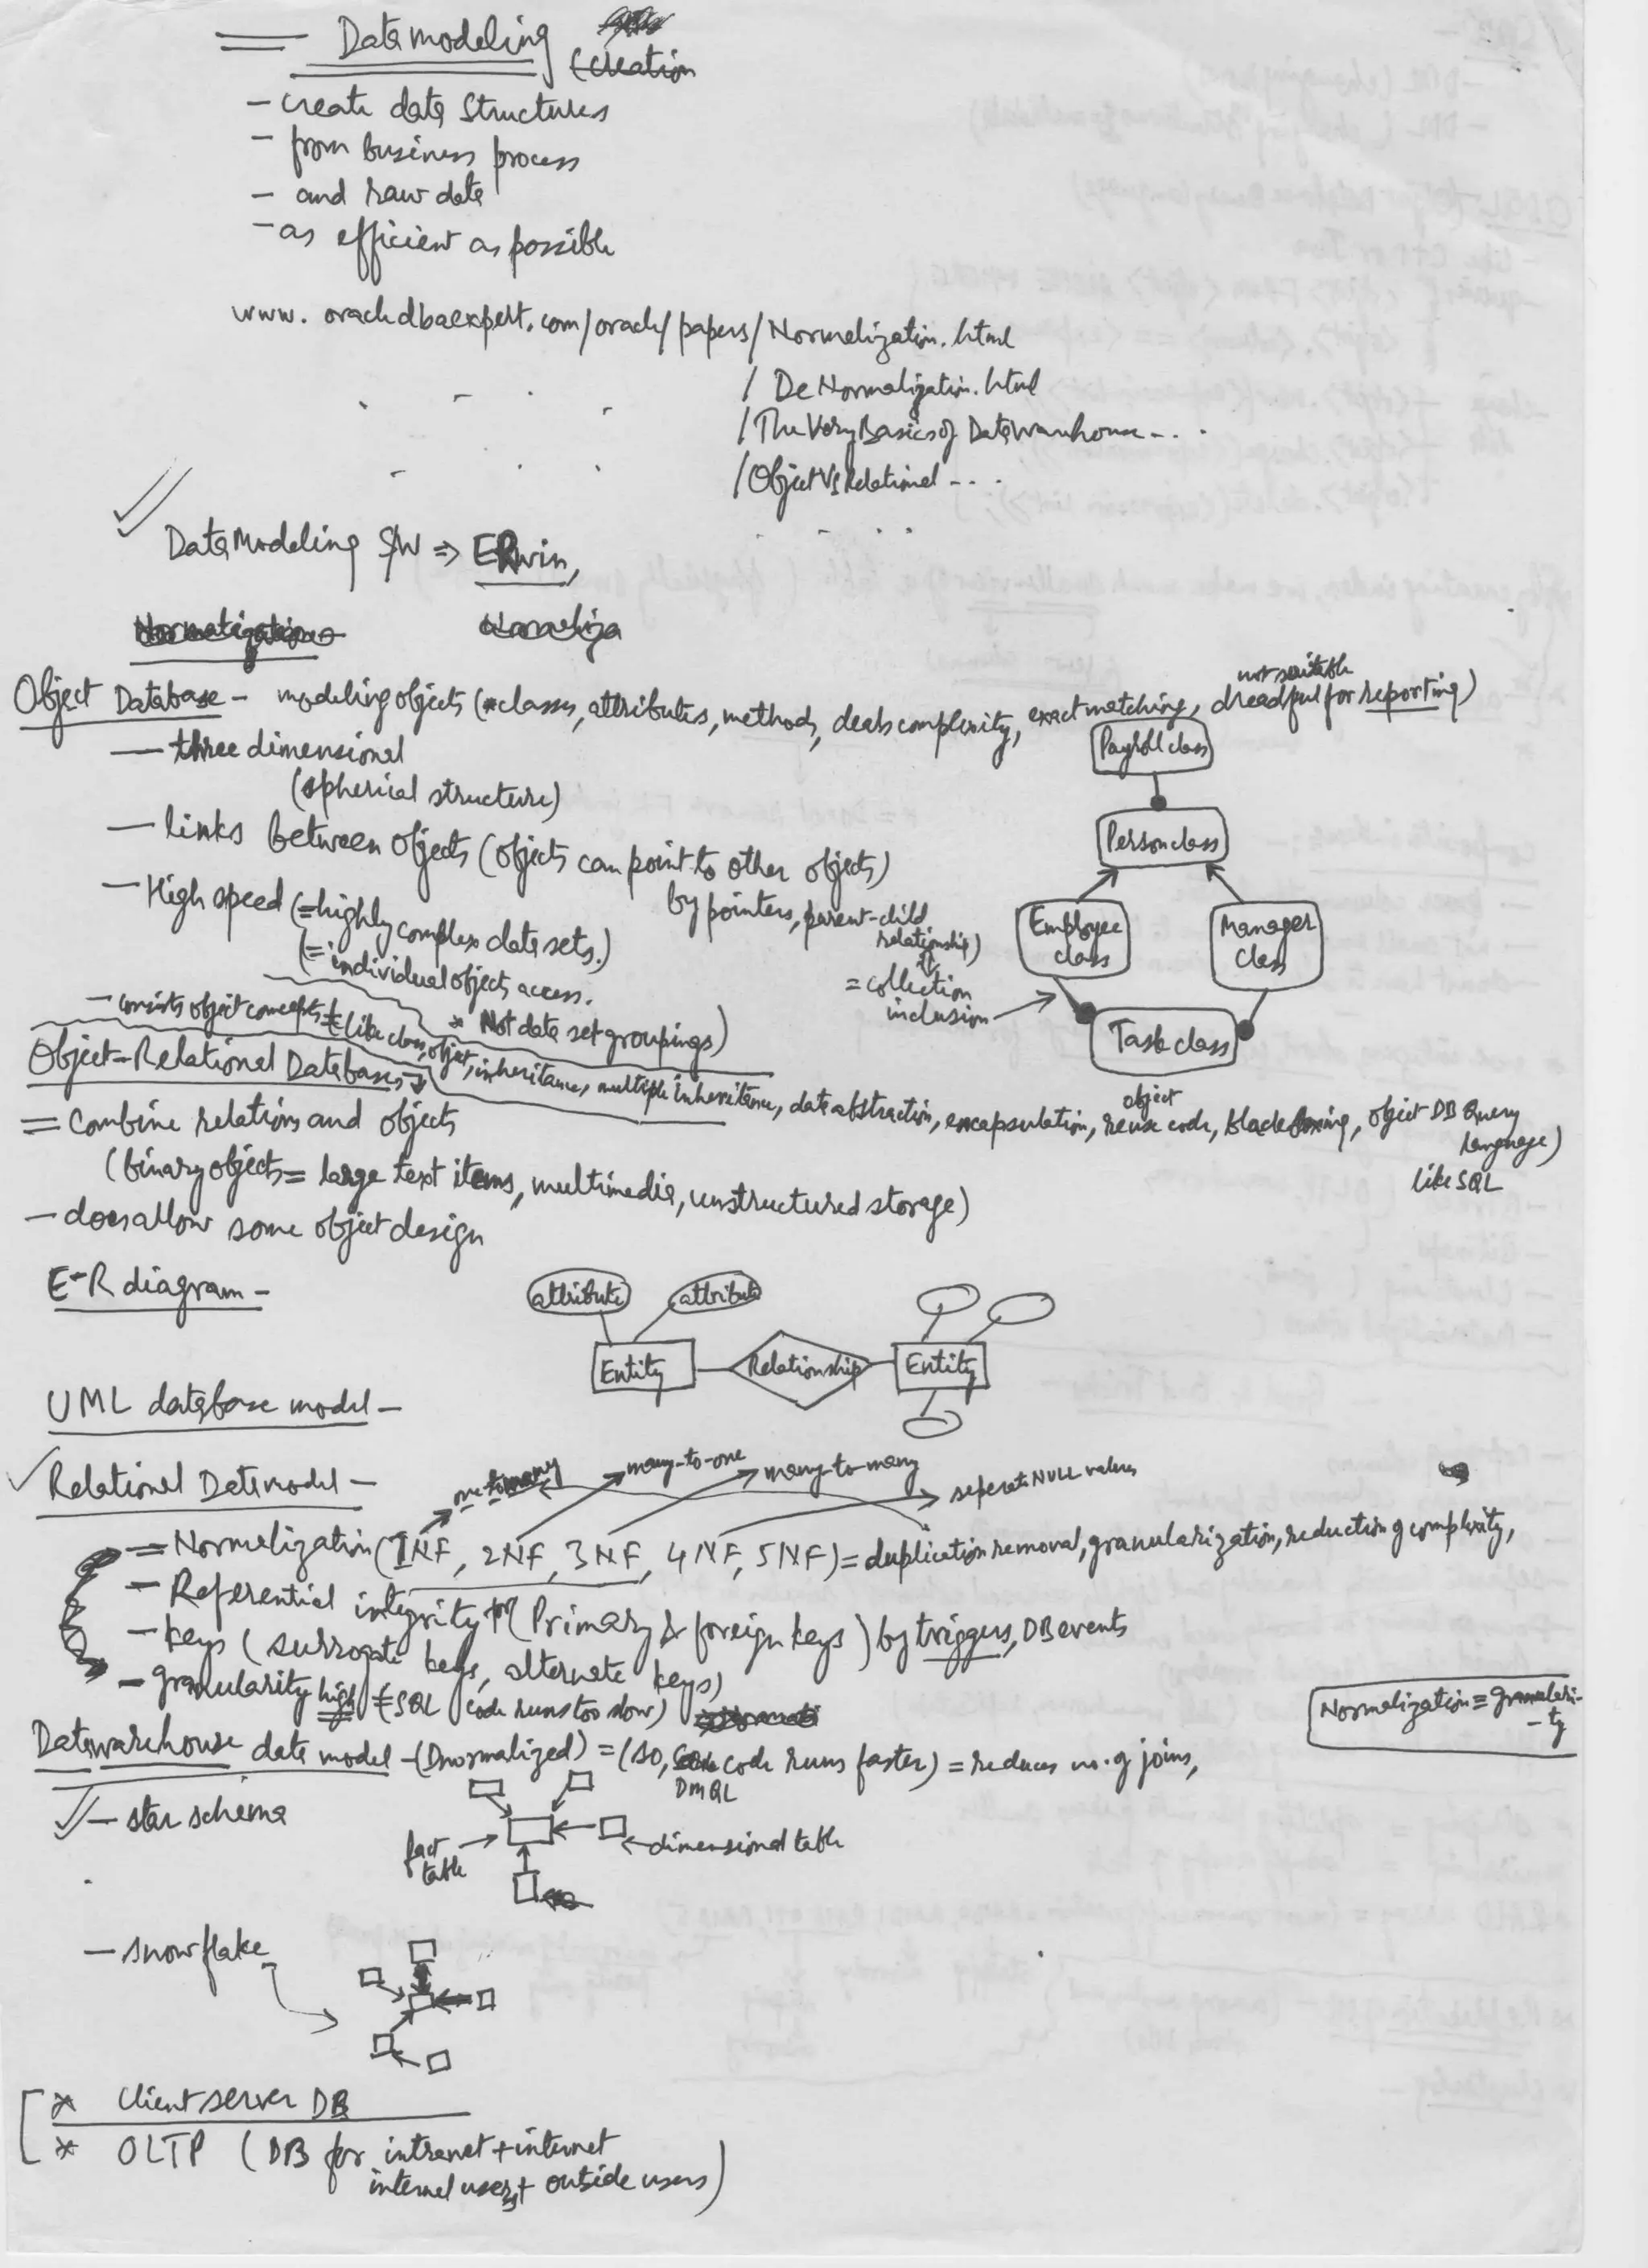 Data modeling
(creation
- create data structures
- from business process
- and raw data
- as efficient as possible
www.oracledbaexpert.com/oracle/papers/Normalization.html
/DeNormalization.html
/TheVeryBasicsofDataWarehouse...
/ObjectVsRelational...
Data Modeling S/W => ERwin,
Object Database - modeling objects (=classes, attributes, methods, deals complexity, exact matching, dreadful for reporting)
not suitable
- three dimensional
(spherical structure)
- links between objects (objects can point to other objects)
by pointers, parent-child
relationship)
= collection
inclusion
- High speed (=highly complex data sets.)
(= individual objects access.
* Not data set groupings)
Payroll class
Person class
Employee
class
Manager
class
Task class
- consists object concepts (like class, object, inheritance, multiple inheritance, data abstraction, encapsulation, reuse code, black boxing, object DB Query
object
language)
like SQL
Object-Relational Databases
= Combine relations and objects
(binary objects = large text items, multimedia, unstructured storage)
- does allow some object design
E-R diagram -
attribute
attribute
Entity
Relationship
Entity
UML database model -
Relational Datamodel -
one to many
many-to-one
many-to-many
seperate NULL values
= Normalization (1NF, 2NF, 3NF, 4NF, 5NF) = duplication removal, granularization, reduction of complexity,
- Referential integrity (Primary & foreign keys) by triggers, DB events
- keys (surrogate keys, alternate keys)
- granularity high (SQL code runs too slow)
Normalization = granulari-
-ty
Datawarehouse data model - (Dnormalized) = (so, code runs faster) = reduces no. of joins,
DMQL
- star schema
fact
table
dimensional table
- snowflake
* Client server DB
* OLTP (DB for intranet + internet
internal users + outside users)